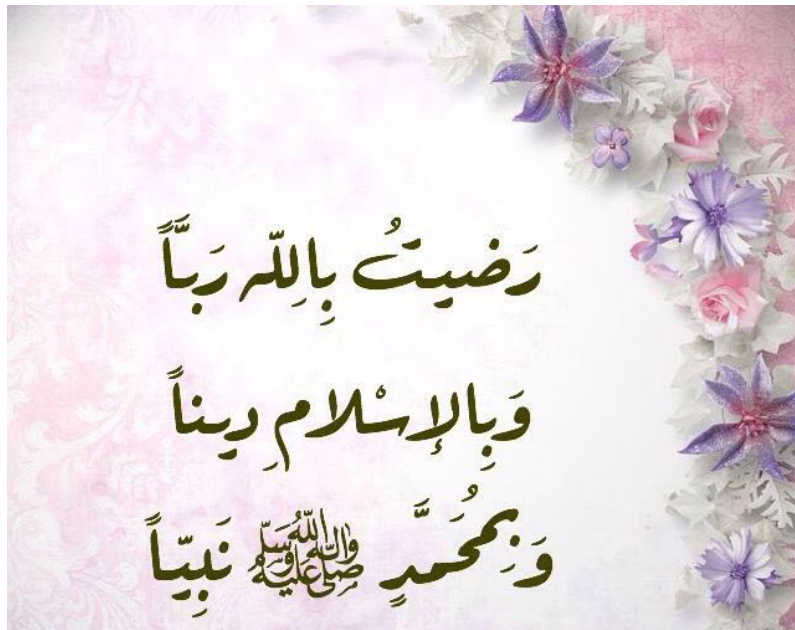 رَضيتُ بِاللّه رَبَّاً
وَبِالإسْلامِ ديناً
وَبِمُحَمَّدٍ ﷺ نَبِيّاً